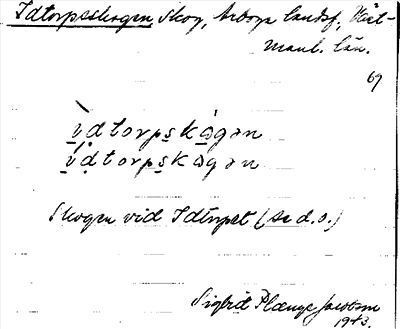 Idtorpsskogen Skog, Arboga landsf., Väst-
manl. län.
69
ìdtorpskògən
ìdtorpskògən
Skogen vid Idtorpet (se d.o.)
Sigbrit Plænge Jacobson
1943.